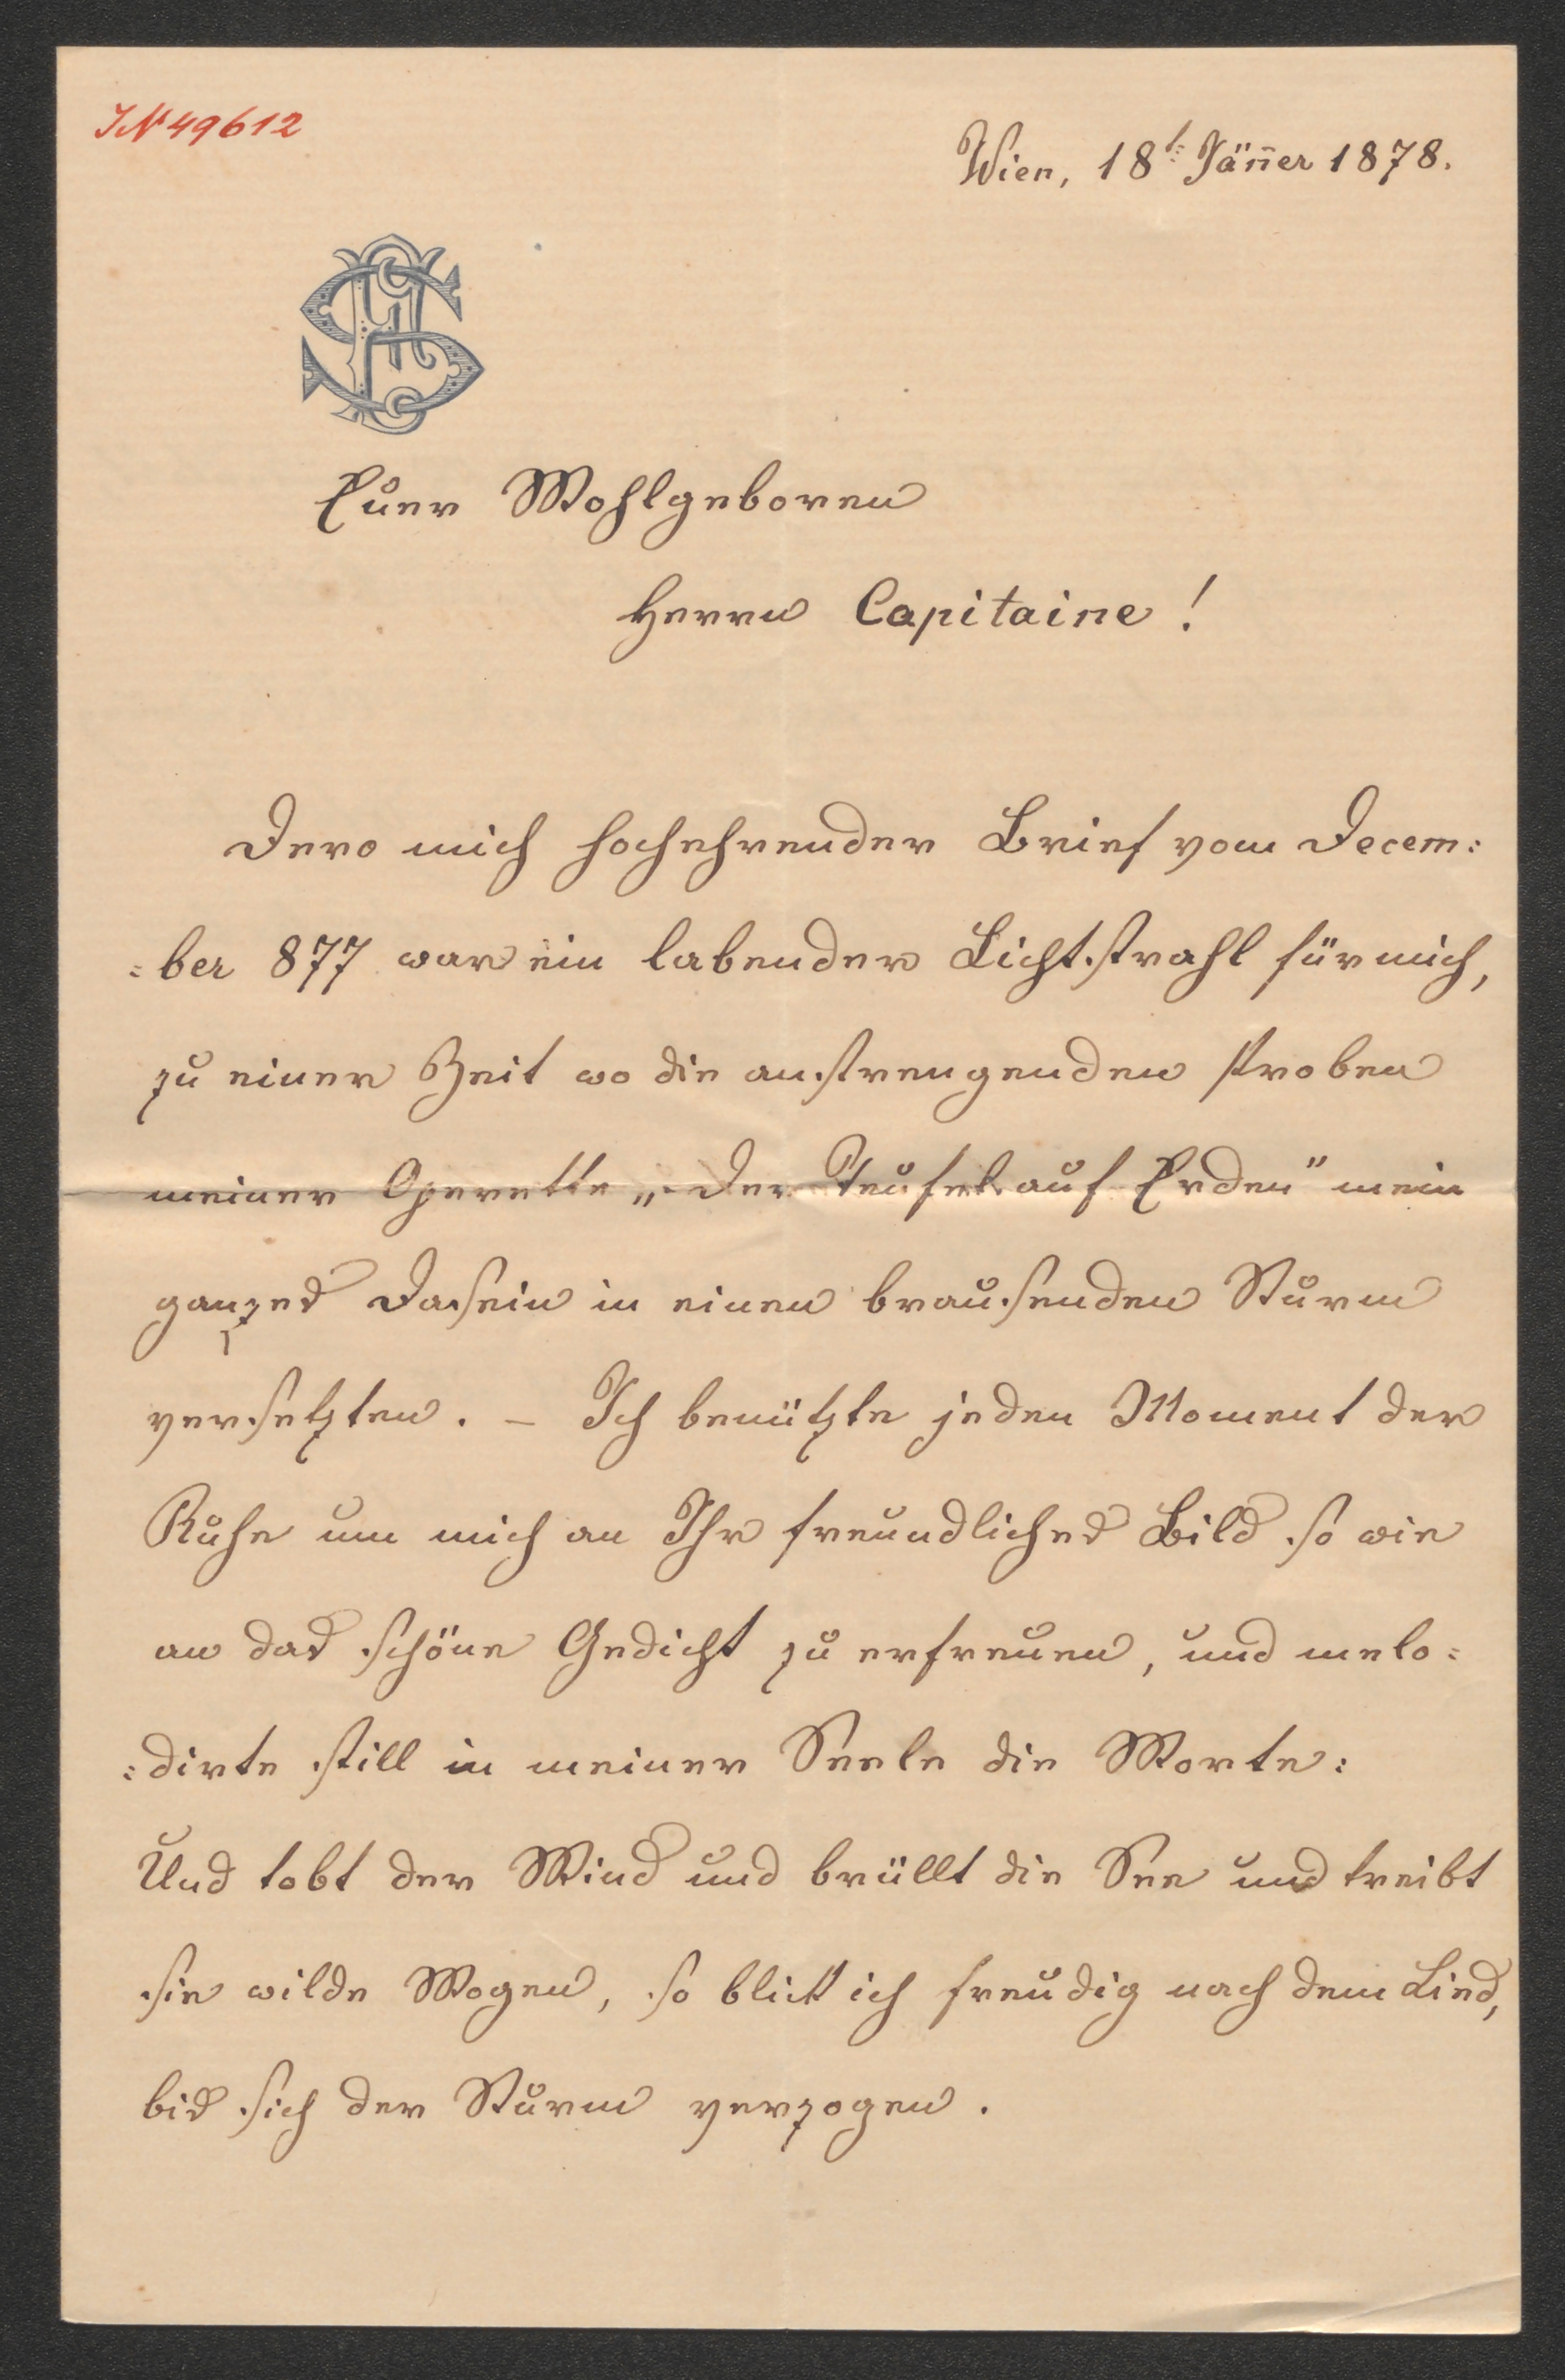 IN 49612
Wien, 18t: Jäner 1878.
Euer Wohlgeboren
Herrn Capitaine!
Dero mich hochehrender Brief vom Decem:
:ber 877 war ein labender Lichtstrahl für mich,
zu einer Zeit wo die anstrengenden Proben
meiner Operette „Der Teufel auf Erden" mein
ganzes Dasein in einen brausenden Sturm
versetzten. – Ich benützte jeden Moment der
Ruhe um mich an Ihr freundliches Bild so wie
an das schöne Gedicht zu erfreuen, und melo:
:dirte still in meiner Seele die Worte:
Und tobt der Wind und brüllt die See und treibt
sie wilde Wogen, so blick ich freudig nach dem Lied,
bis sich der Sturm verzogen.